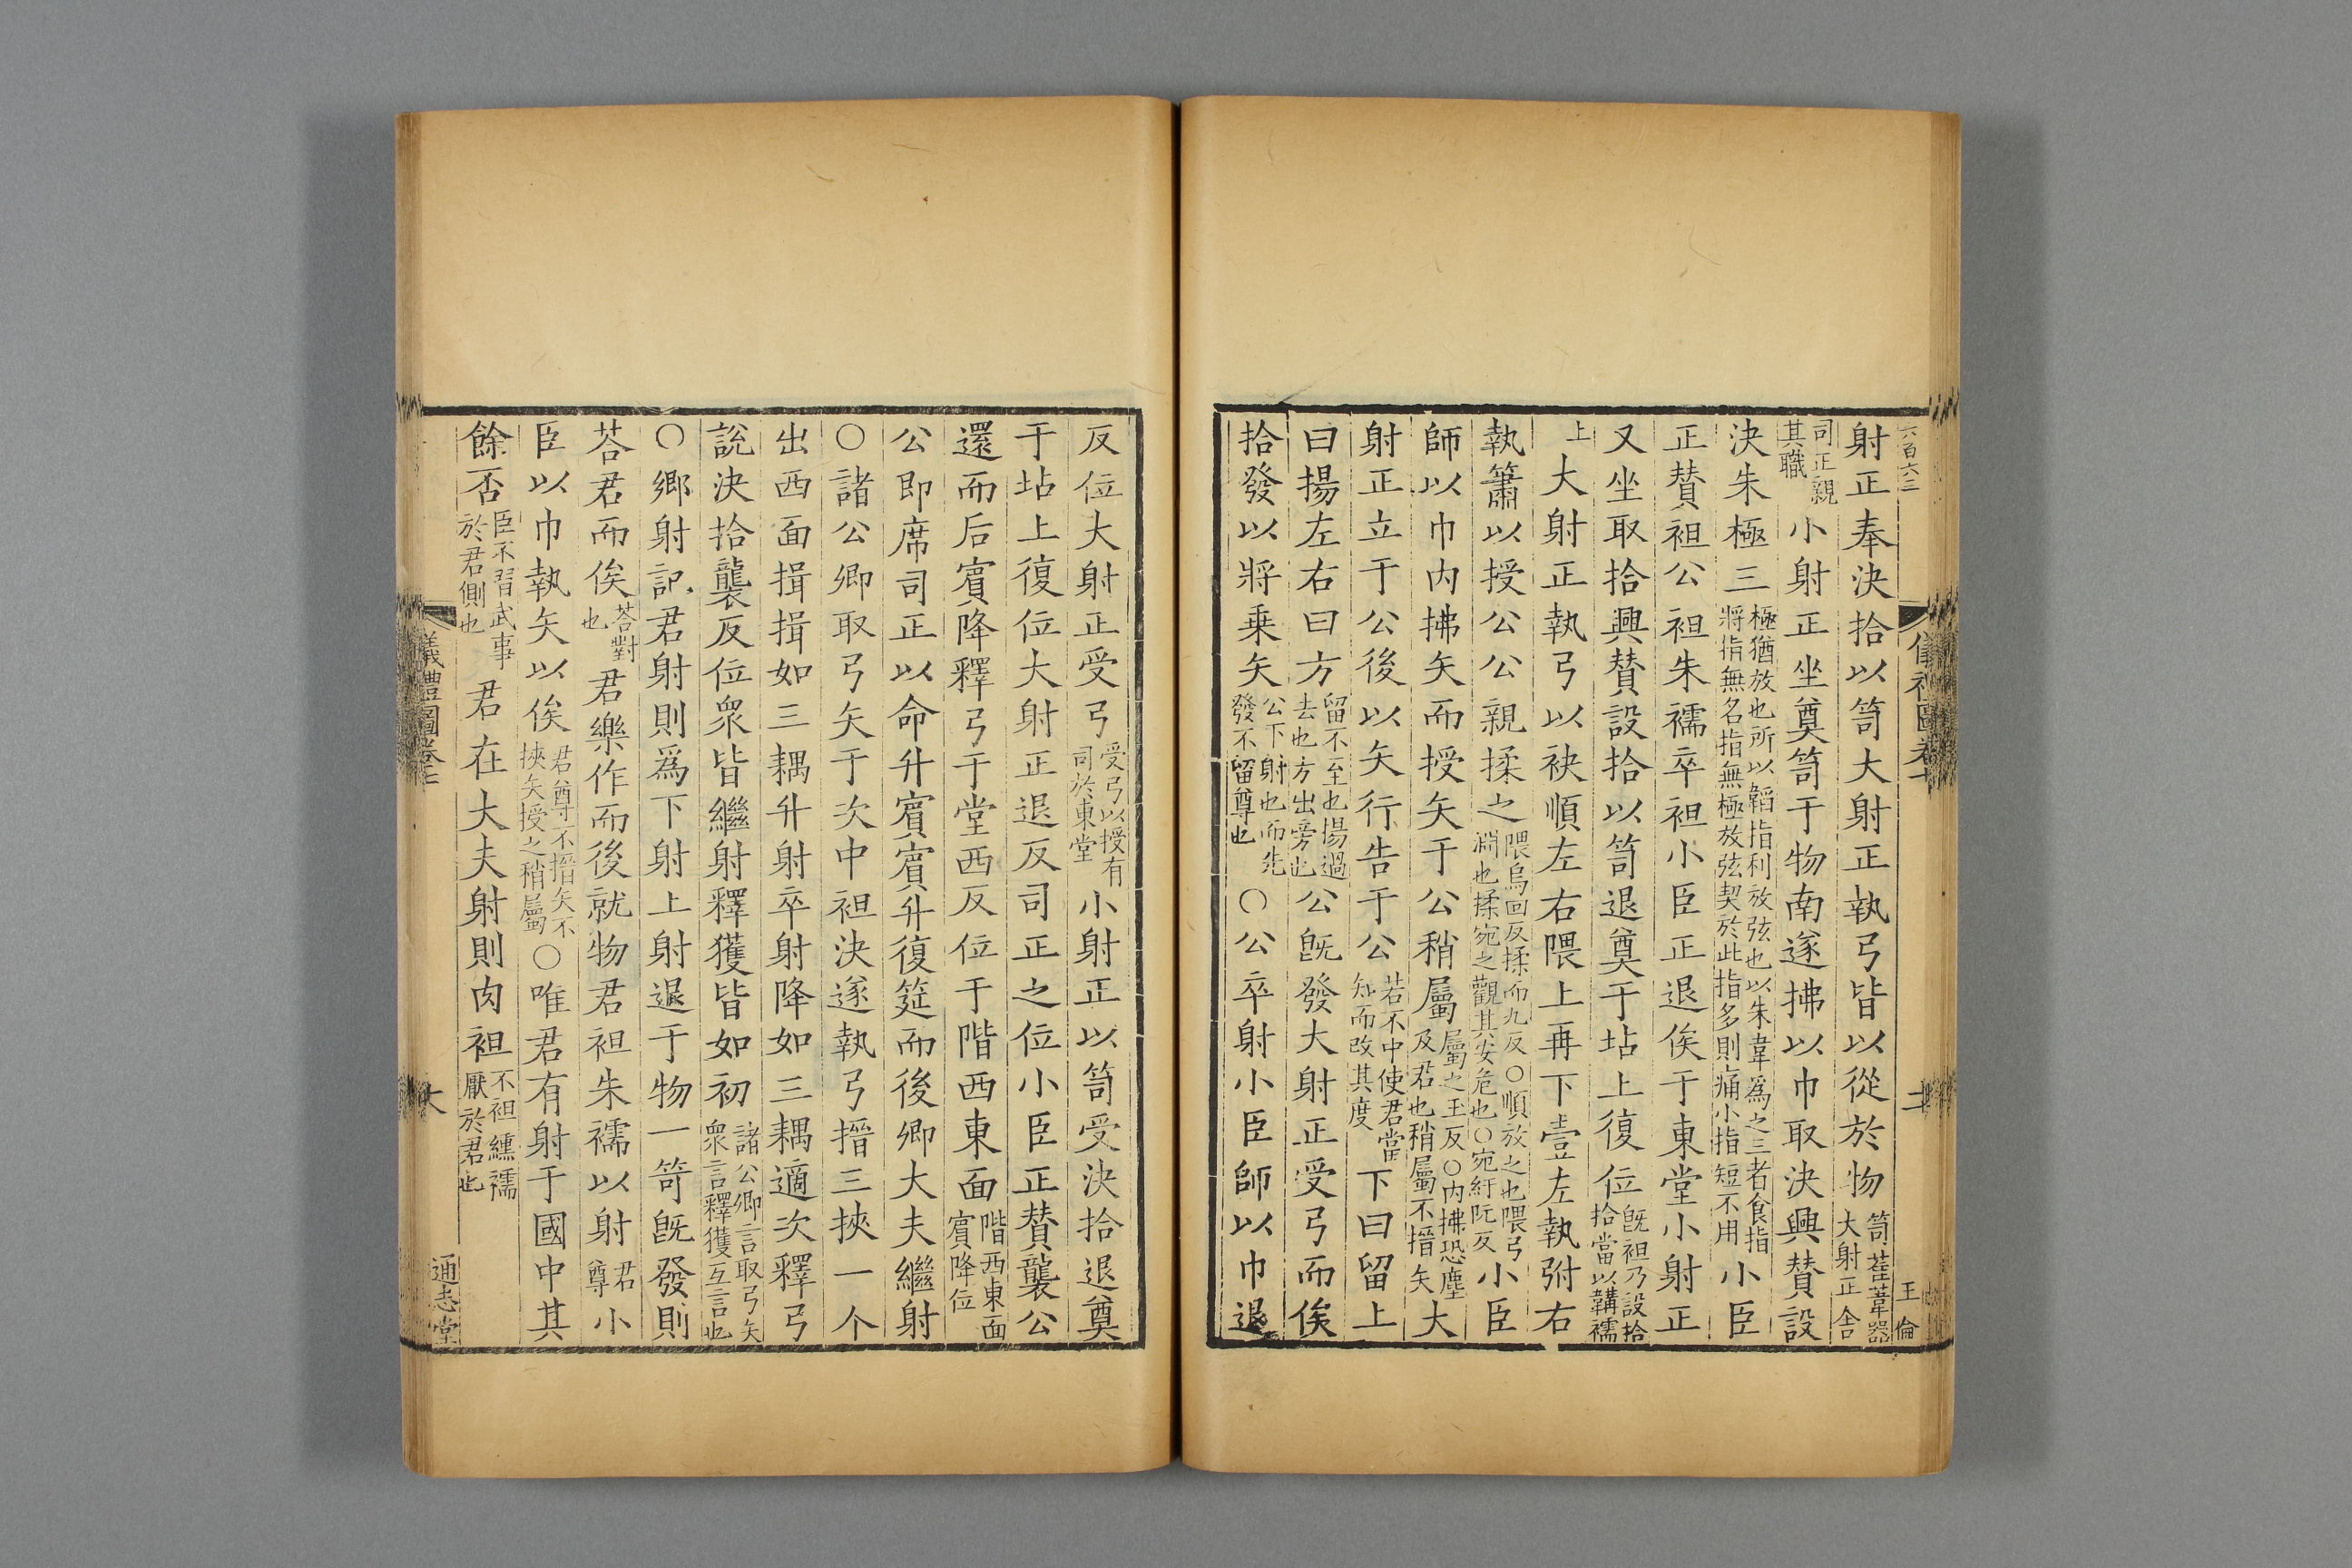 六百六三
射正奉決拾以笥大射正執弓皆以從於物笥萑葦器大射正舍
司正親其職小射正坐奠笥于物南遂拂以巾取決興贊設
決朱極三極猶放也所以韜指利放弦也以朱韋為之三者食指將指無名指無極放弦契於此指多則痛小指短不用小臣
正贊袒公袒朱襦卒袒小臣正退俟于東堂小射正
又坐取拾興贊設拾以笥退奠于坫上復位既袒乃設拾拾當以韝襦
上大射正執弓以袂順左右隈上再下壹左執弣右
執簫以授公公親揉之隈烏回反揉而九反○順放之也隈弓淵也揉宛之觀其安危也○宛紆阮反小臣
師以巾內拂矢而授矢于公稍屬屬之玉反○內拂恐塵及君也稍屬不搢矢大
射正立于公後以矢行告于公若不中使君當知而改其度下曰留上
曰揚左右曰方留不至也揚過去也方出旁也公既發大射正受弓而俟
拾發以將乗矢公下射也而先發不留尊也○公卒射小臣師以巾退
王倫
反位大射正受弓受弓以授有司於東堂小射正以笥受決拾退奠
于坫上復位大射正退反司正之位小臣正贊襲公
還而后賓降釋弓于堂西反位于階西東面階西東面賓降位
公即席司正以命升賓賓升復筵而後卿大夫繼射
○諸公卿取弓矢于次中袒決遂執弓搢三挾一个
出西面揖揖如三耦升射卒射降如三耦適次釋弓
說決拾襲反位眾皆繼射釋獲皆如初諸公卿言取弓矢眾言釋獲互言也
○鄉射記君射則為下射上射退于物一笴既發則
荅君而俟荅對也君樂作而後就物君袒朱襦以射君尊小
臣以巾執矢以俟君尊不搢矢不挾矢授之稍屬○唯君有射于國中其
餘否臣不習武事於君側也君在大夫射則肉袒不袒纁襦厭於君也
儀禮圖卷七
通志堂